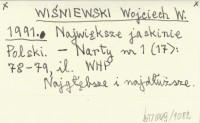 WIŚNIEWSKI Wojciech W.
1991. Największe jaskinie
Polski. – Narty nr 1 (17):
78-79, il. WHP
Najgłębsze i najdłuższe.